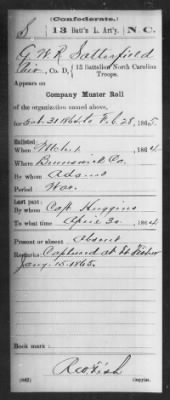 (Confederate.)
S 13 Batt'n L. Art'y. N C.
G W R Satterfield
Co. D, 13 Battalion North Carolina
Troops.
Appears on
Company Muster Roll
of the organization named above,
for Oct. 31 1864 to Feb. 28, 1865
Enlisted:
When Mch 1, 1864
Where Brunswick Co.
By whom Adams
Period War
Last paid:
By whom Capt. Huggins
To what time April 30, 1864
Present or absent Absent
Remarks: Captured at Ft Fisher
Jany. 15. 1865.
Book mark:
(642)
Copyist.